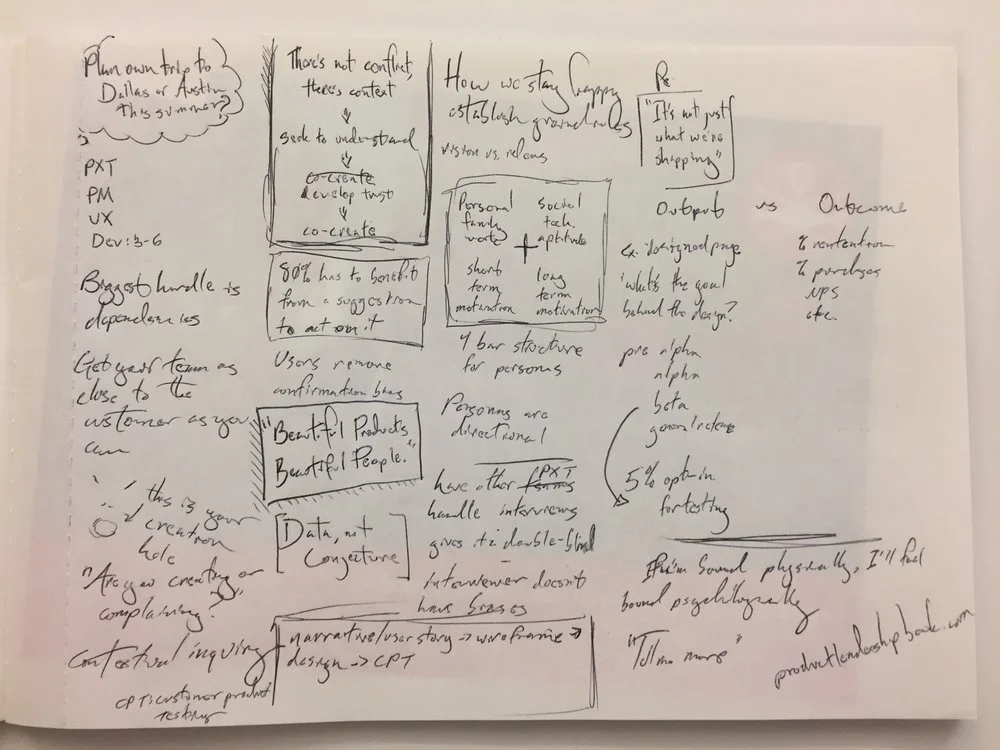 Plan own trip to
Dallas or Austin
this summer?
PXT
PM
UX
Dev: 3-6
Biggest hurdle is
dependencies
Get your team as
close to the
customer as you
can
this is your
creation
hole
"Are you creating or
complaining?"
Contextual inquiry
CPT: customer product
testing
There's not conflict,
there's context
seek to understand
co-create
develop trust
co-create
80% has to benefit
from a suggestion
to act on it
Users remove
confirmation bias
"Beautiful Products
Beautiful People."
Data, not
Conjecture
narrative/user story → wireframe →
design → CPT
How we stay happy
establish ground rules
vision vs.
Personal
family
work
social
tech
aptitude
short
term
motivation
long
term
motivation
4 bar structure
for personas
Personas are
directional
PXT
have other teams
handle interviews
gives it a double-blind
interviewer doesn't
have biases
Ps
"It's not just
what we're
shipping"
Outputs vs Outcome
ex. designed page
what's the goal
behind the design?
% retention
% purchases
NPS
etc.
pre alpha
alpha
beta
general release
5% opt-in
for testing
If I'm bound physically, I'll feel
bound psychologically
"Tell me more"
productleadershipbook.com